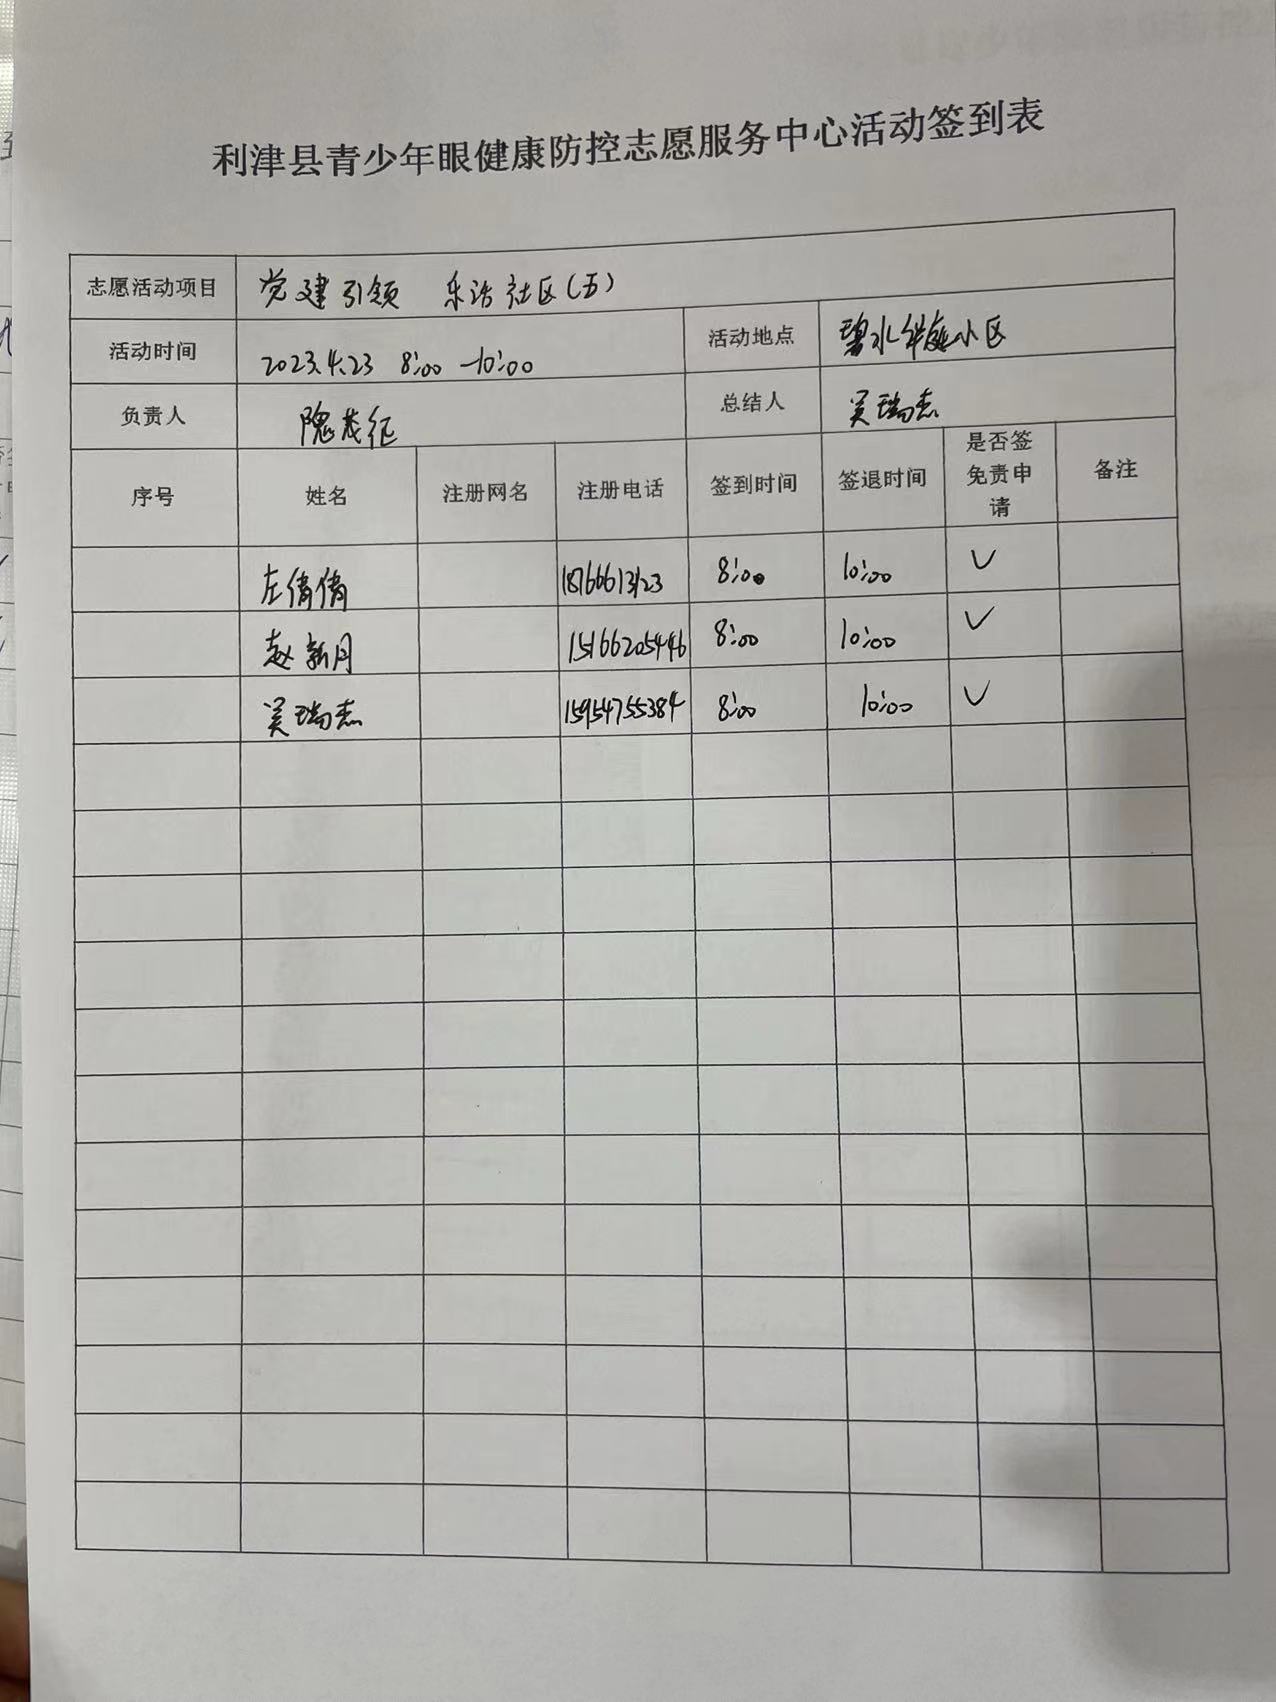 利津县青少年眼健康防控志愿服务中心活动签到表
志愿活动项目 党建引领 乐活社区(五)
活动时间 2023.4.23 8:00-10:00 活动地点 碧水华庭小区
负责人 隗茂征 总结人 吴瑞志
序号 姓名 注册网名 注册电话 签到时间 签退时间 是否签免责申请 备注
左倩倩 18766613123 8:00 10:00 ✓
赵新月 15166205446 8:00 10:00 ✓
吴瑞志 15954755384 8:00 10:00 ✓